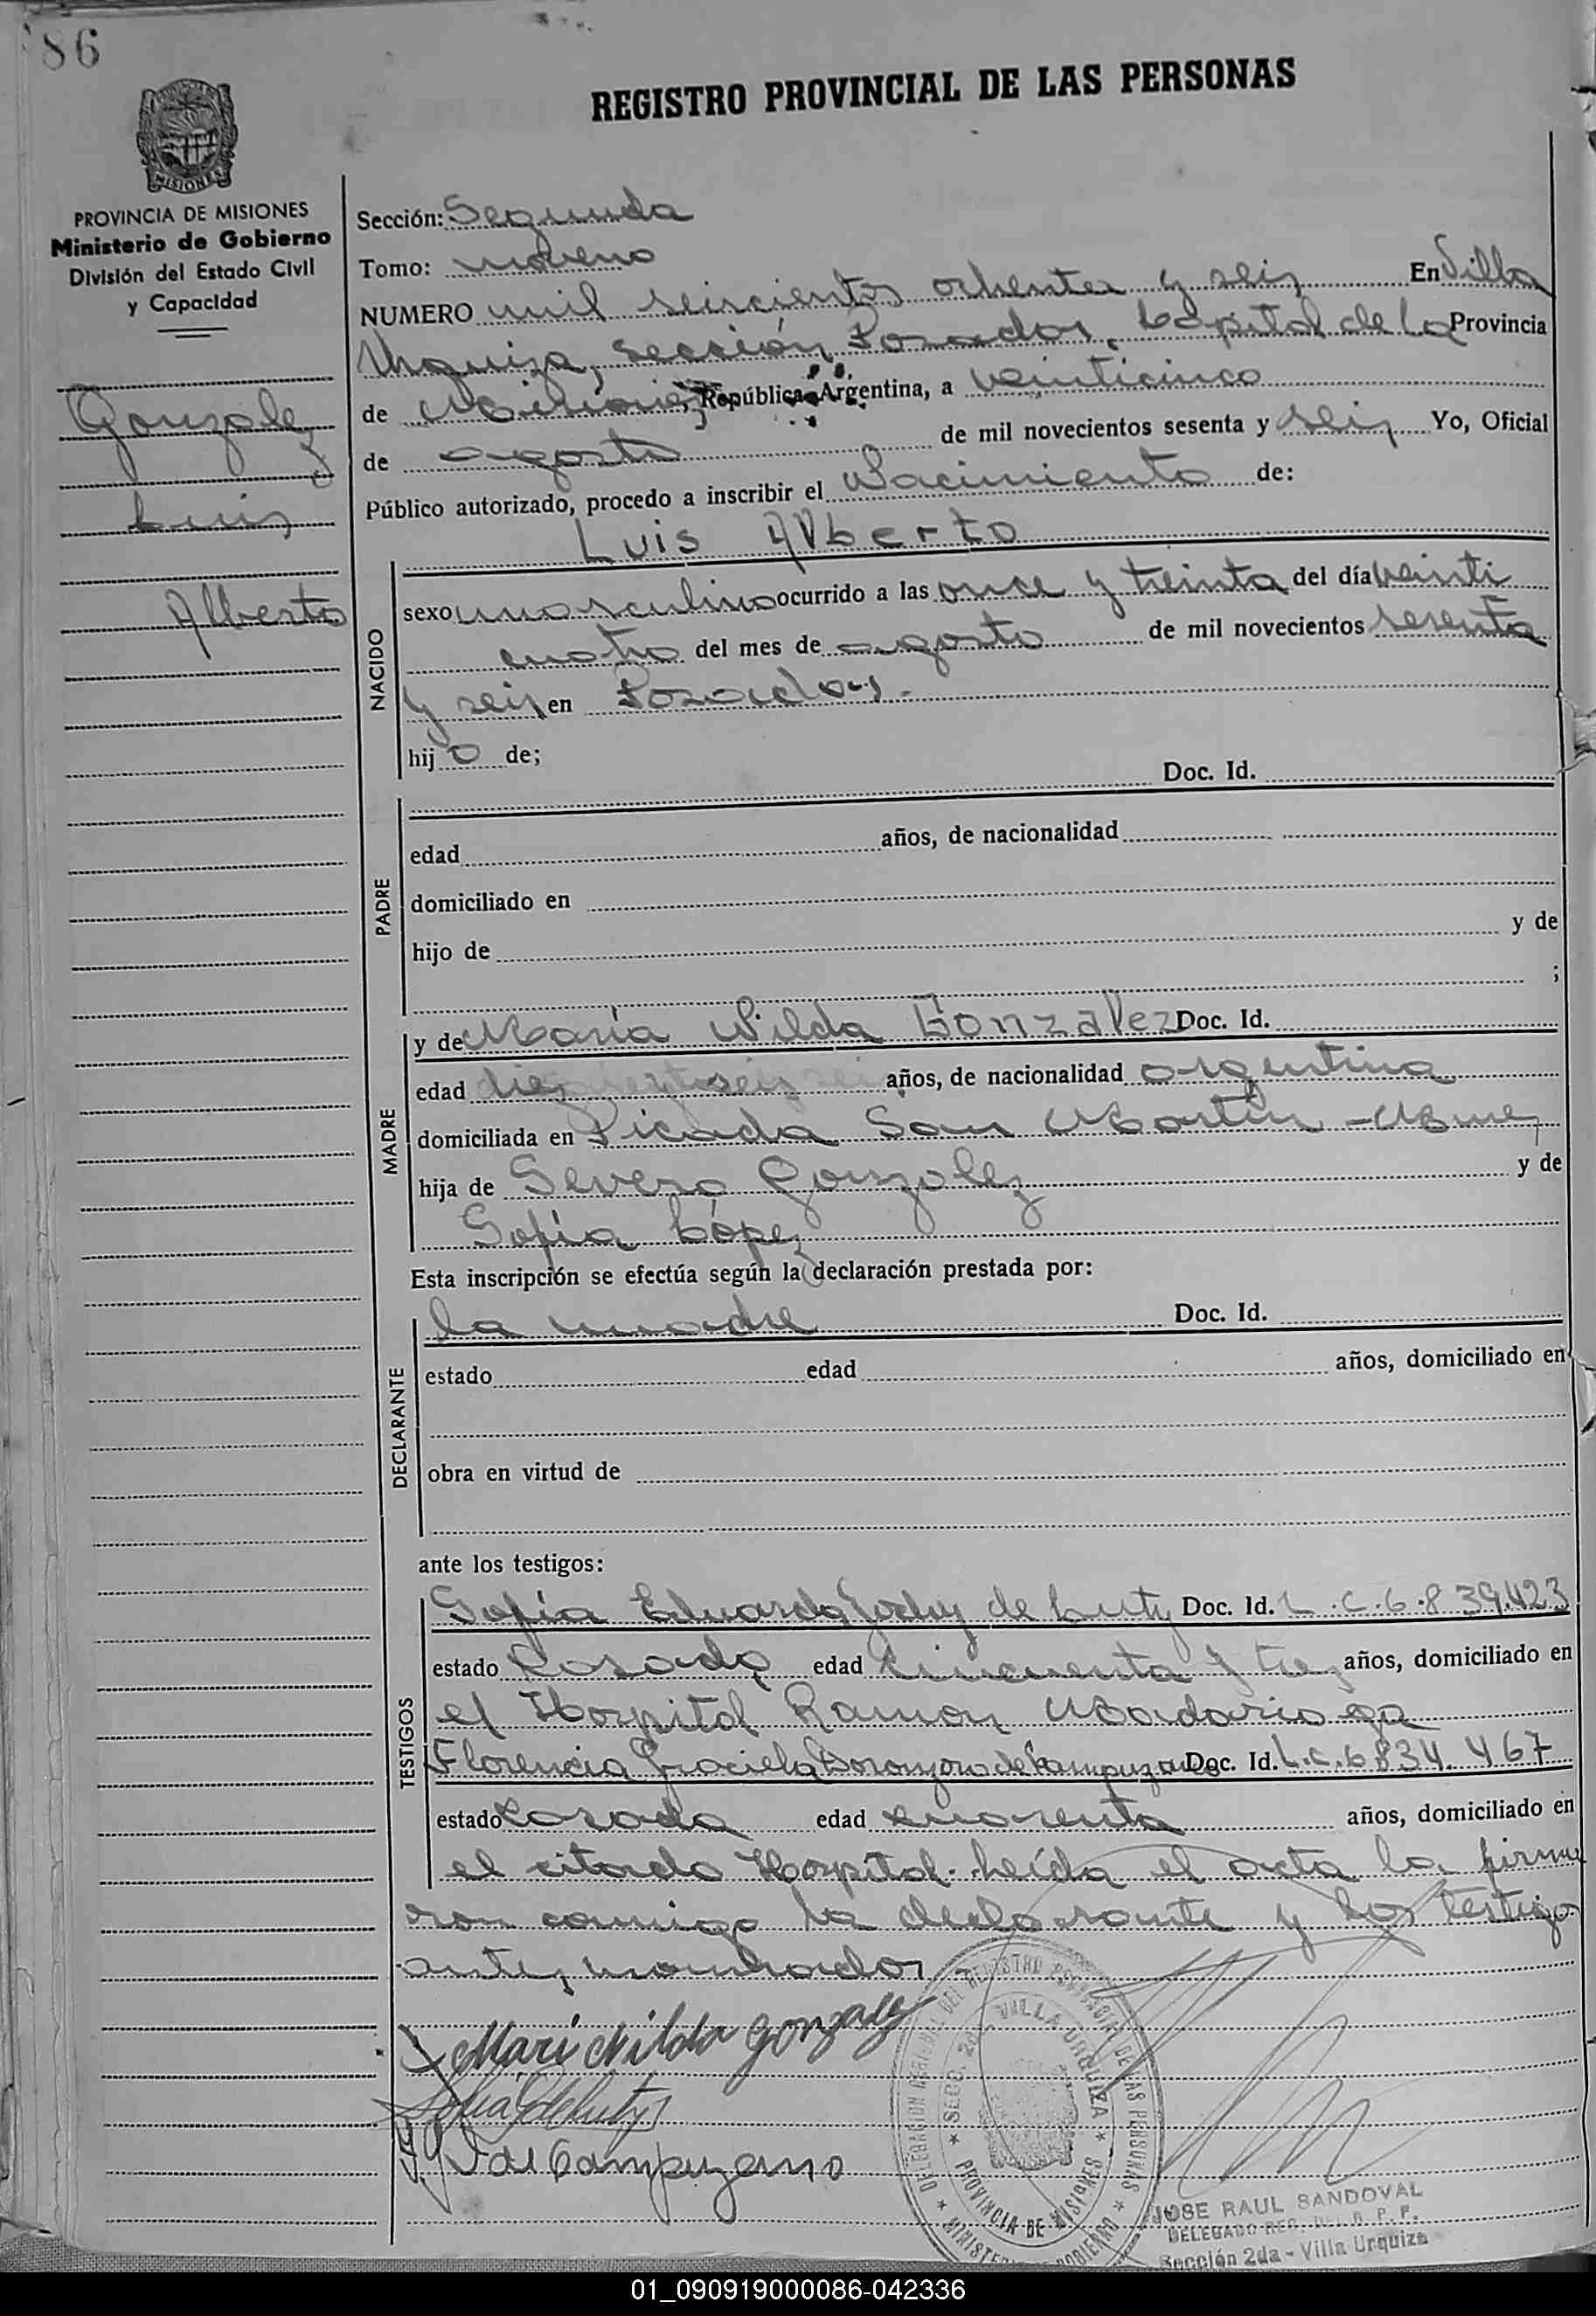 86
REGISTRO PROVINCIAL DE LAS PERSONAS
MISIONES
PROVINCIA DE MISIONES
Ministerio de Gobierno
División del Estado Civil
y Capacidad
Gonzalez
Luis
Alberto
Sección: Segunda
Tomo: noveno
NUMERO mil seiscientos ochenta y seis En Villa
Urquiza, Sección Posadas, Capital de la Provincia
de Misiones, República Argentina, a veinticinco
de agosto de mil novecientos sesenta y seis Yo, Oficial
Público autorizado, procedo a inscribir el Nacimiento de:
Luis Alberto
NACIDO
sexo masculino ocurrido a las once y treinta del día veinti
cuatro del mes de agosto de mil novecientos sesenta
y seis en Posadas.
hijo de;
PADRE
Doc. Id.
edad años, de nacionalidad
domiciliado en
hijo de y de
;
MADRE
y de María Nilda Gonzalez Doc. Id.
edad dieciseis años, de nacionalidad argentina
domiciliada en Picada San Martín -
hija de Severo Gonzalez y de
Sofía López
Esta inscripción se efectúa según la declaración prestada por:
DECLARANTE
la madre Doc. Id.
estado edad años, domiciliado en
obra en virtud de
ante los testigos:
TESTIGOS
Sofía Eduarda Godoy de Luty Doc. Id. L.C.6.839.423
estado Casada edad cincuenta y tres años, domiciliado en
el Hospital Ramon Madariaga
Florencia Graciela de Campuzano Doc. Id. L.C.6834.467
estado Casada edad cuarenta años, domiciliado en
el citado Hospital. Leída el acta la firma
ron conmigo la declarante y los testigos
antes nombrados
Mari Nilda Gonzalez
Sofia G de Luty
de Campuzano
DELEGACION DEL REGISTRO PROVINCIAL DE LAS PERSONAS
SECC. 2da. VILLA URQUIZA
PROVINCIA DE MISIONES
MINISTERIO GOBIERNO
JOSE RAUL SANDOVAL
DELEGADO REG. DEL R. P. P.
Sección 2da - Villa Urquiza
01_090919000086-042336